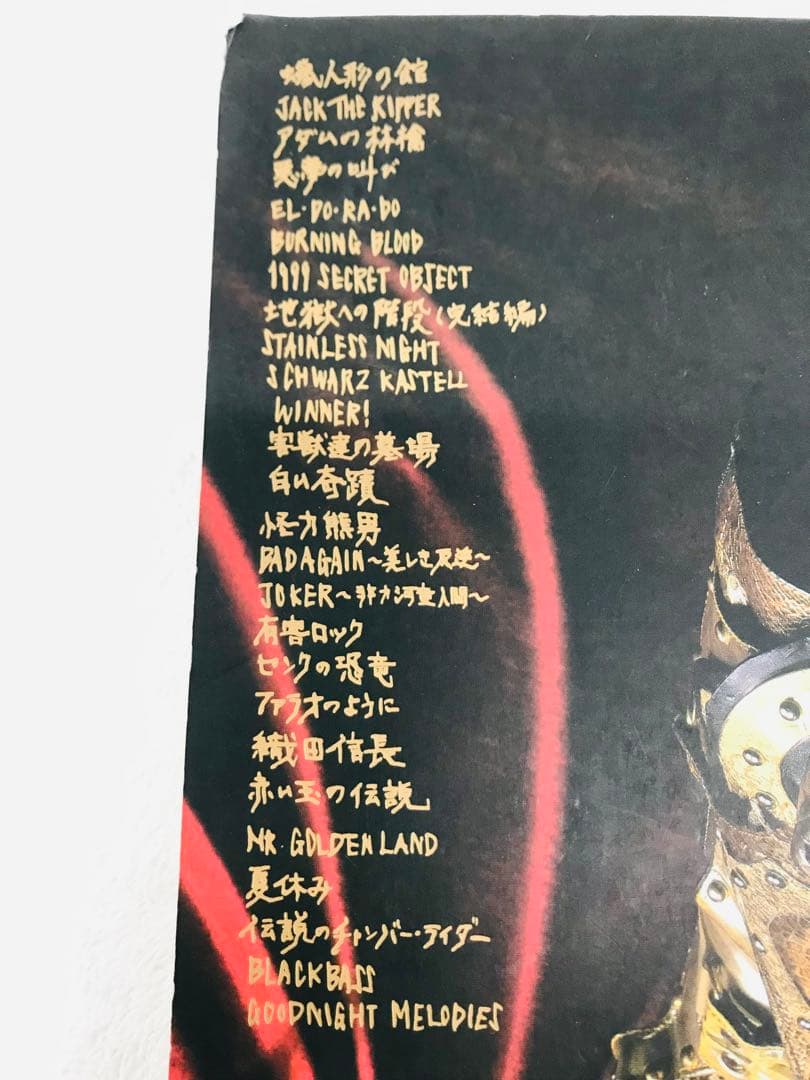 蠟人形の館
JACK THE RIPPER
アダムの林檎
悪夢の叫び
EL・DO・RA・DO
BURNING BLOOD
1999 SECRET OBJECT
地獄への階段(完結編)
STAINLESS NIGHT
SCHWARZ KASTELL
WINNER!
害獣達の墓場
白い奇蹟
怪力熊男
BAD AGAIN～美しき反逆～
JOKER～非力河童人間～
有害ロック
センクの恐竜
ファラオのように
織田信長
赤い玉の伝説
MR. GOLDEN LAND
夏休み
伝説のチャンバー・ライダー
BLACKBASS
GOODNIGHT MELODIES